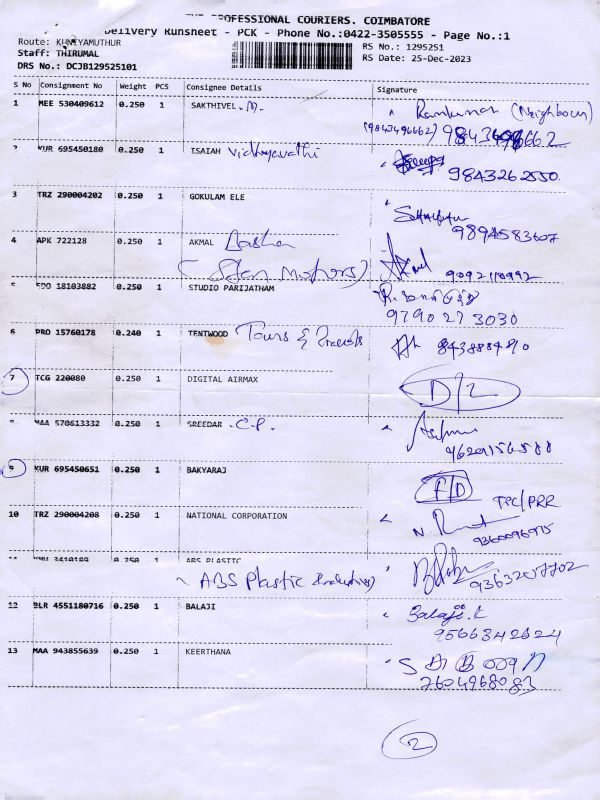 PROFESSIONAL COURIERS. COIMBATORE
Delivery Runsheet - PCK - Phone No.:0422-3505555 - Page No.:1
Route: KUNIYAMUTHUR
RS No.: 1295251
Staff: THIRUMAL
RS Date: 25-Dec-2023
DRS No.: DCJB129525101
S No Consignment No Weight PCS Consignee Details Signature
1 MEE 530409612 0.250 1 SAKTHIVEL (Neighbour)
(9843496662)
KUR 695450180 0.250 1 ISAIAH Vidhyavathi
9843262550
3 TRZ 290004202 0.250 1 GOKULAM ELE
9894583607
4 APK 722128 0.250 1 AKMAL
(Star Motors) 9092110992
18103882 0.250 1 STUDIO PARIJATHAM
9790273030
6 PRO 15760178 0.240 1 TENTWOOD Tours & Travels
7 TCG 220080 0.250 1 DIGITAL AIRMAX D/L
MAA 570613332 0.250 1 SREEDAR .C.P.
9 KUR 695450651 0.250 1 BAKYARAJ F/D
TPC/PRR
10 TRZ 290004208 0.250 1 NATIONAL CORPORATION
9360096915
3410189 0.250 1 ABS PLASTIC
ABS Plastic 9363207702
12 BLR 4551180716 0.250 1 BALAJI Balaji.K
9566342624
13 MAA 943855639 0.250 1 KEERTHANA
7604968083
2